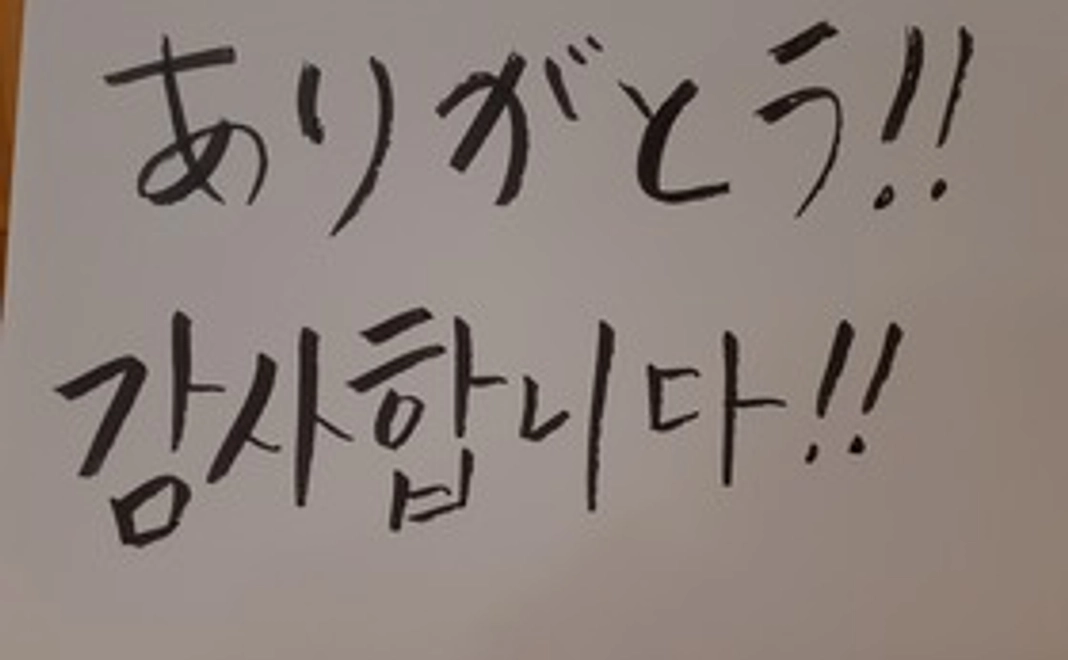 ありがとう!!
감사합니다!!